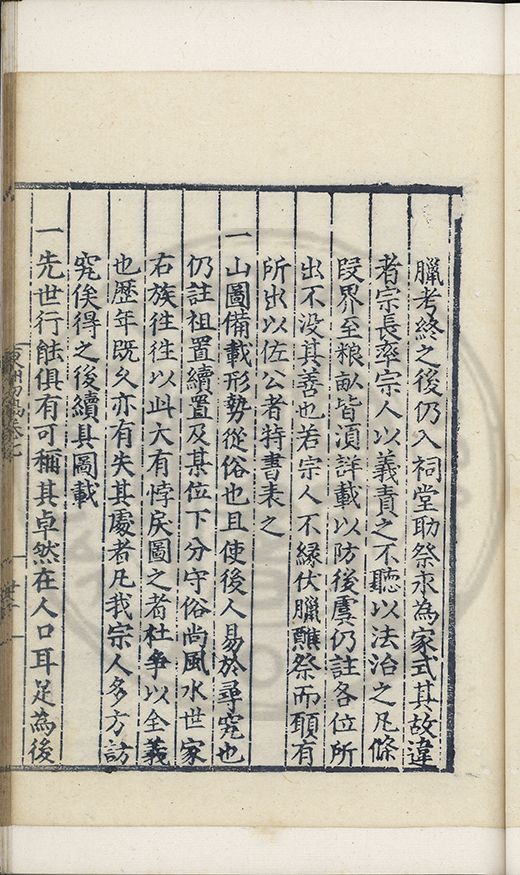 臘考終之後仍入祠堂助祭永為家式其故違
者宗長率宗人以義責之不聽以法治之凡條
叚界至粮畆皆湏詳載以防後虞仍註各位所
出不没其善也若宗人不縁伏臘醮祭而頋有
所出以佐公者特書表之
一山圖備載形勢從俗也且使後人易於尋究也
仍註祖置續置及某位下分守俗尚風水世家
右族徃徃以此大有悖戾圖之者杜争以全義
也歴年既久亦有失其處者凡我宗人多方訪
究俟得之後續具圖載
一先世行能俱有可稱其卓然在人口耳足為後